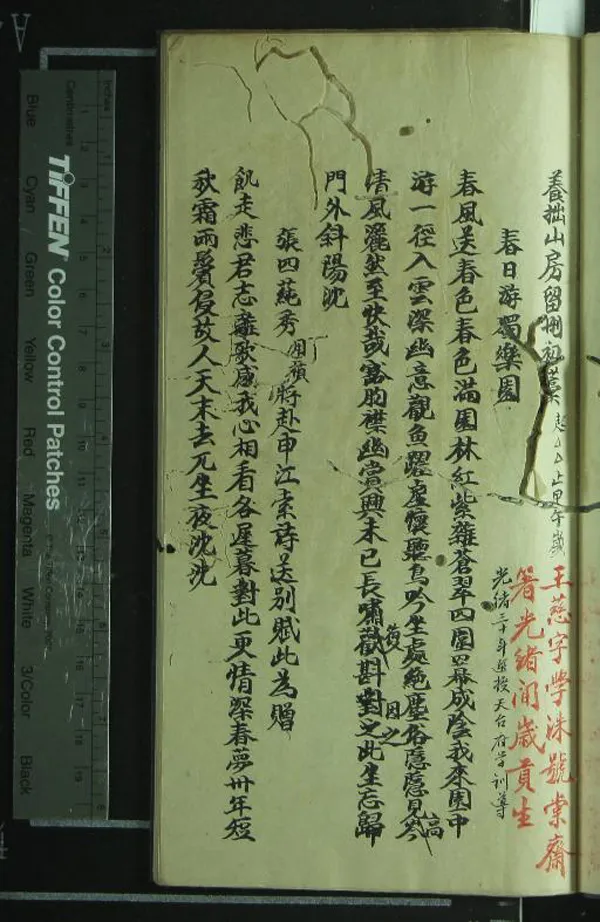 養拙山房留刪初藁 起 止甲午歲
王慈字學洙號棠齋
著光緒間歲貢生
光緒三十年選授天台府學訓導
春日游獨樂園
春風送春色春色滿園林紅紫雜蒼翠四圍羃成陰我來園中
游一徑入雲深幽意觀魚躍虛懷聽鳥吟坐處絕塵俗隱隱見岑
高
清風灑然至快哉豁胸襟幽賞興未已長嘯歡斟對之此生忘歸
復
因之
門外斜陽沈
張四蒓秀 將赴申江索詩送別賦此為贈
飢走悲君志離歌感我心相看各遲暮對此更情深春夢卅年短
秋霜兩鬢侵故人天末去兀坐夜沈沈
Inches
Centimetres
TIFFEN Color Control Patches
Blue
Cyan
Green
Yellow
Red
Magenta
White
3/Color
Black